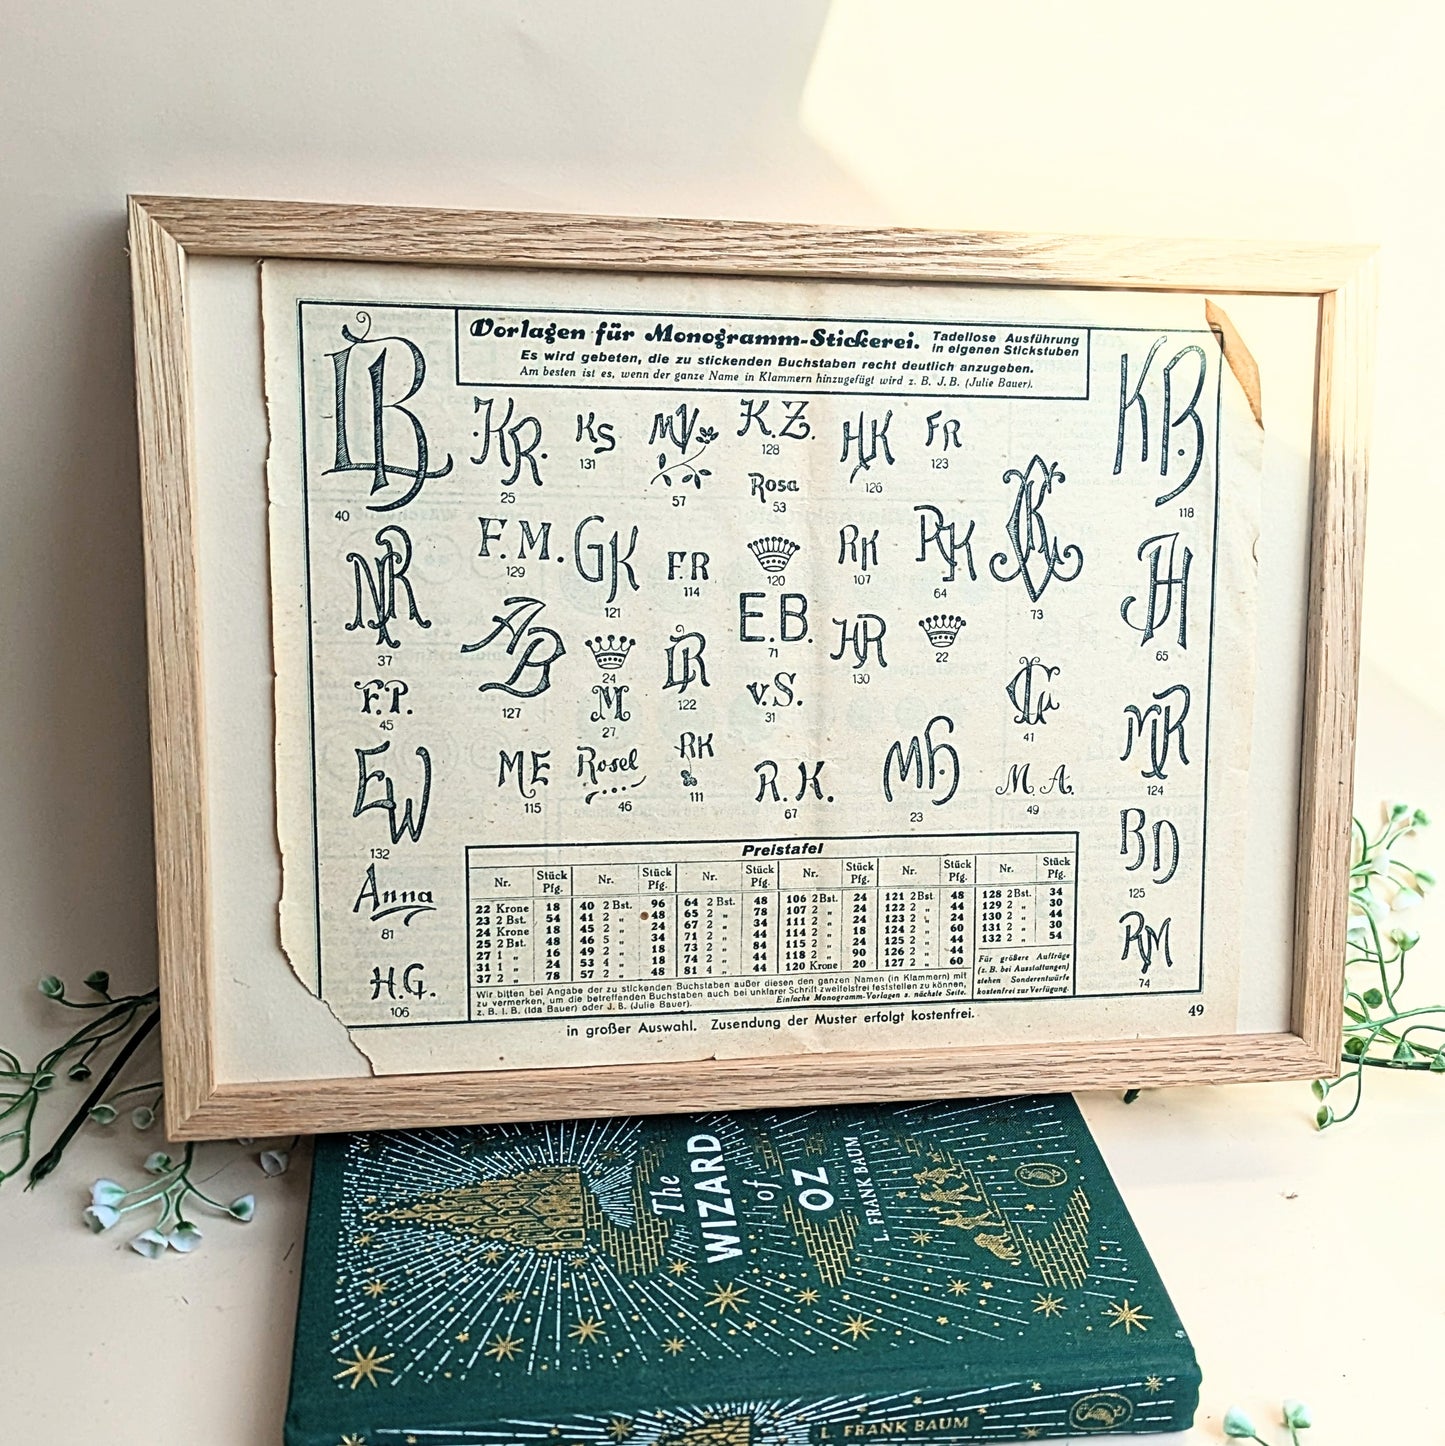 Vorlagen für Monogramm-Stickerei. Tadellose Ausführung in eigenen Stickstuben
Es wird gebeten, die zu stickenden Buchstaben recht deutlich anzugeben.
Am besten ist es, wenn der ganze Name in Klammern hinzugefügt wird z. B. J. B. (Julie Bauer).
LB
40
KR.
25
KS
131
MV
57
K.Z.
128
HK
126
FR
123
KB
118
Rosa
53
NR
37
F.M.
129
GK
121
F.R
114
120
RK
107
RK
64
73
H
65
AB
127
24
R
122
E.B.
71
HR
130
22
F.P.
45
M
27
v.S.
31
41
MR
124
EW
132
ME
115
Rosel
46
RK
111
R.K.
67
MH
23
M.A.
49
Anna
81
BD
125
H.G.
106
RM
74
Preistafel
Nr. Stück Pfg. Nr. Stück Pfg. Nr. Stück Pfg. Nr. Stück Pfg. Nr. Stück Pfg. Nr. Stück Pfg.
22 Krone 18 40 2 Bst. 96 64 2 Bst. 48 106 2 Bst. 24 121 2 Bst 48 128 2 Bst. 34
23 2 Bst. 54 41 2 „ 48 65 2 „ 78 107 2 „ 24 122 2 „ 44 129 2 „ 30
24 Krone 18 45 2 „ 24 67 2 „ 34 111 2 „ 24 123 2 „ 24 130 2 „ 44
25 2 Bst. 48 46 5 „ 34 71 2 „ 44 114 2 „ 18 124 2 „ 60 131 2 „ 30
27 1 „ 16 49 2 „ 18 73 2 „ 84 115 2 „ 24 125 2 „ 44 132 2 „ 54
31 1 „ 24 53 4 „ 18 74 2 „ 44 118 2 „ 90 126 2 „ 44
37 2 „ 78 57 2 „ 48 81 4 „ 44 120 Krone 20 127 2 „ 60
Für größere Aufträge
(z. B. bei Ausstattungen)
stehen Sonderentwürfe
kostenfrei zur Verfügung.
Wir bitten bei Angabe der zu stickenden Buchstaben außer diesen den ganzen Namen (in Klammern) mit
zu vermerken, um die betreffenden Buchstaben auch bei unklarer Schrift zweifelsfrei feststellen zu können,
z. B. I. B. (Ida Bauer) oder J. B. (Julie Bauer). Einfache Monogramm-Vorlagen s. nächste Seite.
in großer Auswahl. Zusendung der Muster erfolgt kostenfrei.
49
The
WIZARD
of
OZ
L. FRANK BAUM
L. FRANK BAUM